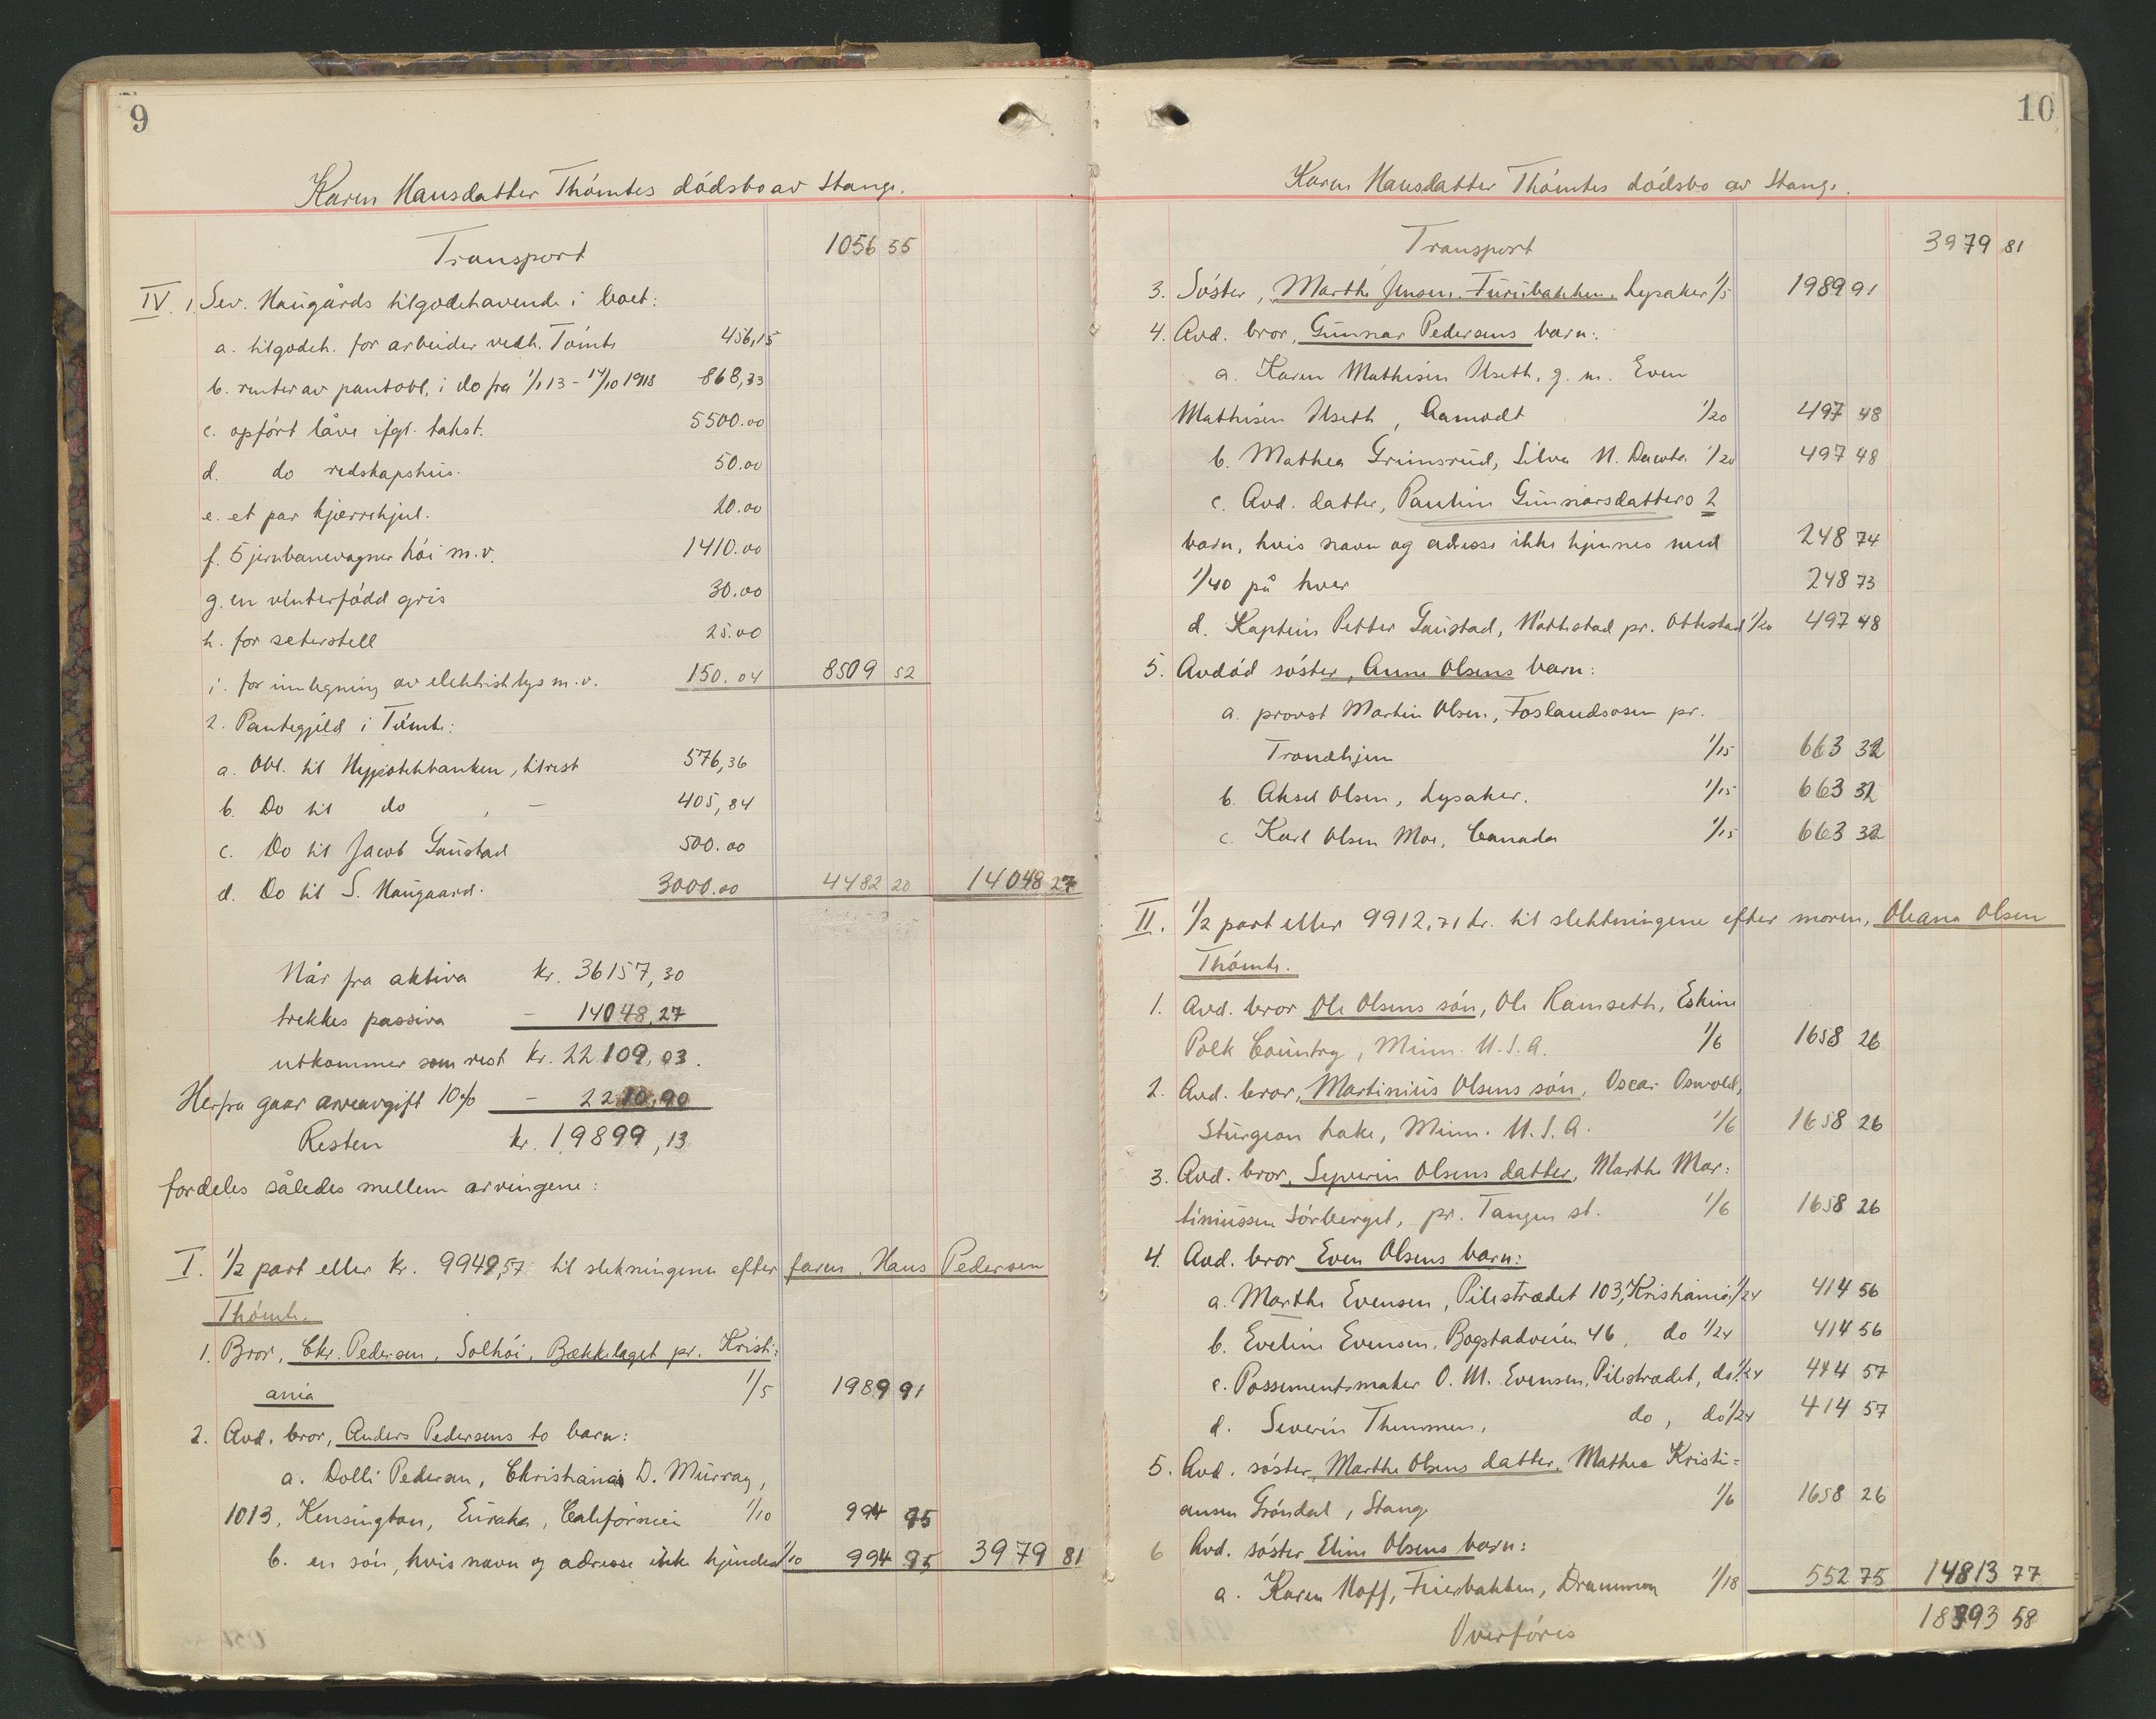 9
Karen Hansdatter Thómtes dódsbo av Stange.
Transport 1056 55
IV. 1. Sev. Haugårds tilgodehavende i boet:
a. tilgodeh. for arbeider vedk. Tómte 456,15
b. renter av pantobl. i do fra 1/1 13 - 14/10 1918 868,33
c. opfórt låve ifgl. takst. 5500.00
d. do redskapshus. 50.00
e. et par kjærrehjul. 20.00
f. 5 jernbanevogner hói m.v. 1410.00
g. en vinterfódd gris 30.00
h. for seterstell 25.00
i. for innlegning av elektrisk lys m.v. 150.04 8509 52
2. Pantegjeld i Tómte:
a. Obl. til Hypotekbanken, tilrest 576,36
b. Do til do , - 405,84
c. Do til Jacob Gaustad 500.00
d. Do til S. Haugaard. 3000.00 4482 20 14048 27
Når fra aktiva kr. 36157,30
trekkes passiva - 14048,27
utkommer som rest kr. 22109,03.
Herfra gaar arveavgift 10% - 2210,90
Resten kr. 19899,13
fordeles således mellem arvingene:
I. 1/2 part eller kr. 9949,57 til slektningene efter faren, Hans Pedersen
Thómte.
1. Bror, Chr. Pedersen, Solhói, Bækkelaget pr. Kristi-
ania 1/5 1989 91
2. Avd. bror, Anders Pedersens to barn:
a. Dolli Pedersen, Christiania D. Murray,
1013, Kensington, Euraka, Californien 1/10 994 95
b. en són, hvis navn og adresse ikke kjendes 1/10 994 95 3979 81
10
Karen Hansdatter Thómtes dódsbo av Stange.
Transport 3979 81
3. Sóster, Marthe Jensen, Furubakken, Lysaker 1/5 1989 91
4. Avd. bror, Gunnar Pedersens barn:
a. Karen Mathisen Useth, g. m. Even
Mathisen Useth, Aamodt 1/20 497 48
b. Mathea Grimsrud, Silva N. Dacota 1/20 497 48
c. Avd. datter, Pauline Gunnarsdatters 2
barn, hvis navn og adresse ikke kjennes med 248 74
1/40 på hver 248 73
d. Kaptein Petter Gaustad, Hattestad pr. Ottestad 1/20 497 48
5. Avdód sóster, Anne Olsens barn:
a. provst Martin Olsen, Foslandsosen pr.
Trondhjem 1/15 663 32
b. Aksel Olsen, Lysaker. 1/15 663 32
c. Karl Olsen Moe, Canada 1/15 663 32
II. 1/2 part eller 9912,71 kr. til slektningene efter moren, Oleana Olsen
Thómte.
1. Avd. bror Ole Olsens són, Ole Ramseth, Eskine
Polk Countrg, Minn. U.S.A. 1/6 1658 26
2. Avd. bror, Martinius Olsens són, Oscar Oswold,
Sturgeon Lake, Minn. U.S.A. 1/6 1658 26
3. Avd. bror, Syverin Olsens datter, Marthe Mar-
tiniussen Sórberget, pr. Tangen st. 1/6 1658 26
4. Avd. bror Even Olsens barn:
a. Marthe Evensen, Pilestrædet 103, Kristiania 1/24 414 56
b. Eveline Evensen, Bogstadveien 46, do 1/24 414 56
c. Possementsmaker O. M. Evensen, Pilestrædet, do. 1/24 414 57
d. Severin Thommen, do, do 1/24 414 57
5. Avd. sóster, Marthe Olsens datter, Mathea Kristi-
ansen Gróndal, Stange 1/6 1658 26
6 Avd. sóster Eline Olsens barn:
a. Karen Hoff, Feierbakken, Drammen 1/18 552 75 14813 77
Overfóres 18793 58